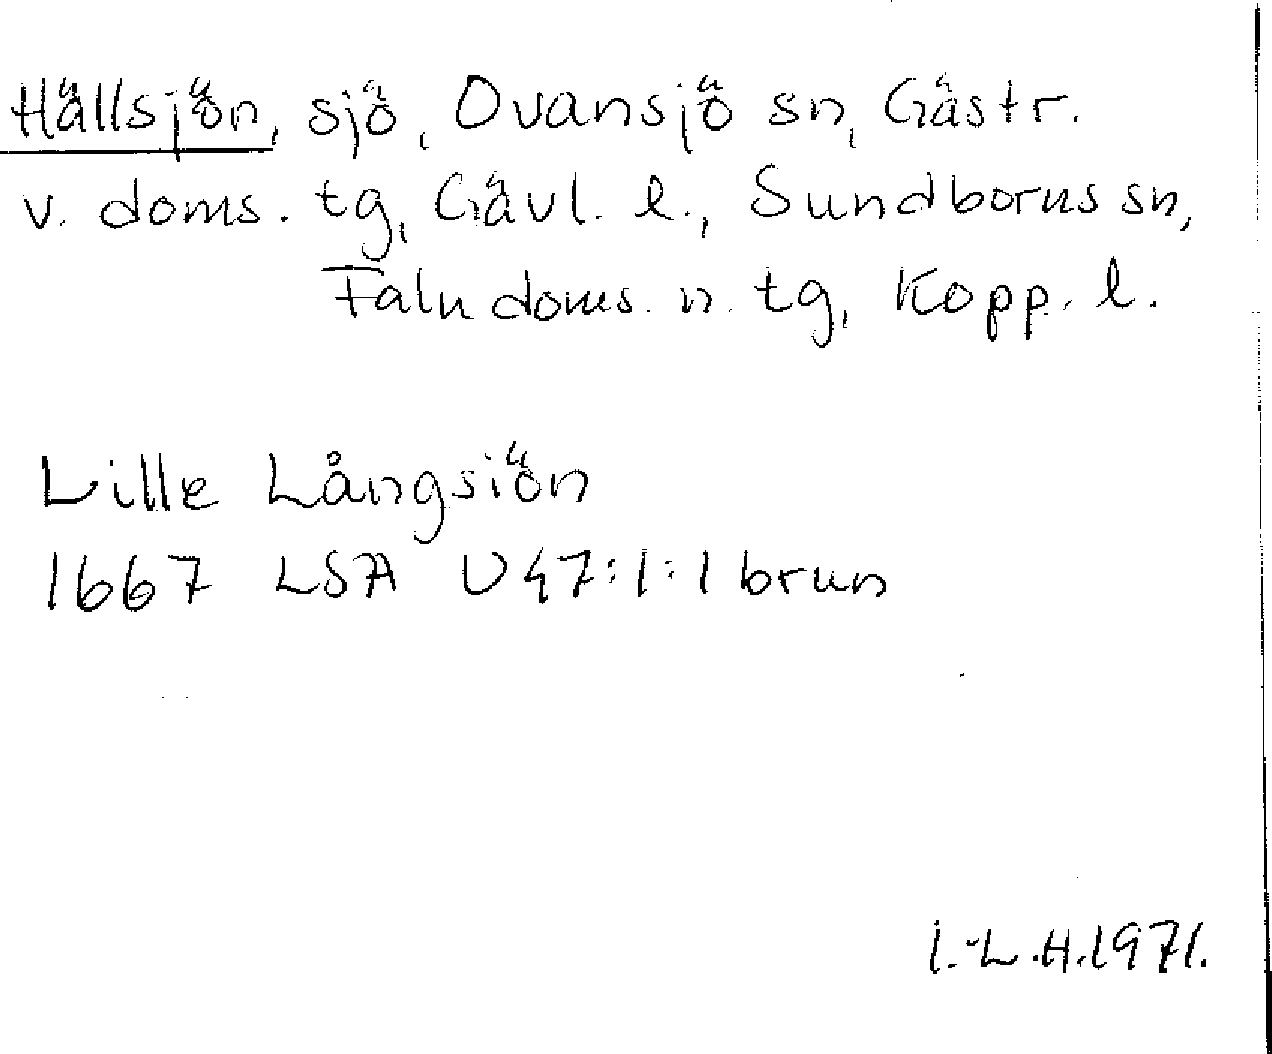 Hällsjön, sjö, Ovansjö sn, Gästr.
v. doms. tg, Gävl. l., Sundborns sn,
Falu doms. n. tg, Kopp. l.
Lille Långsiön
1667 LSA U47:1:1 brun
I.-L.H.1971.